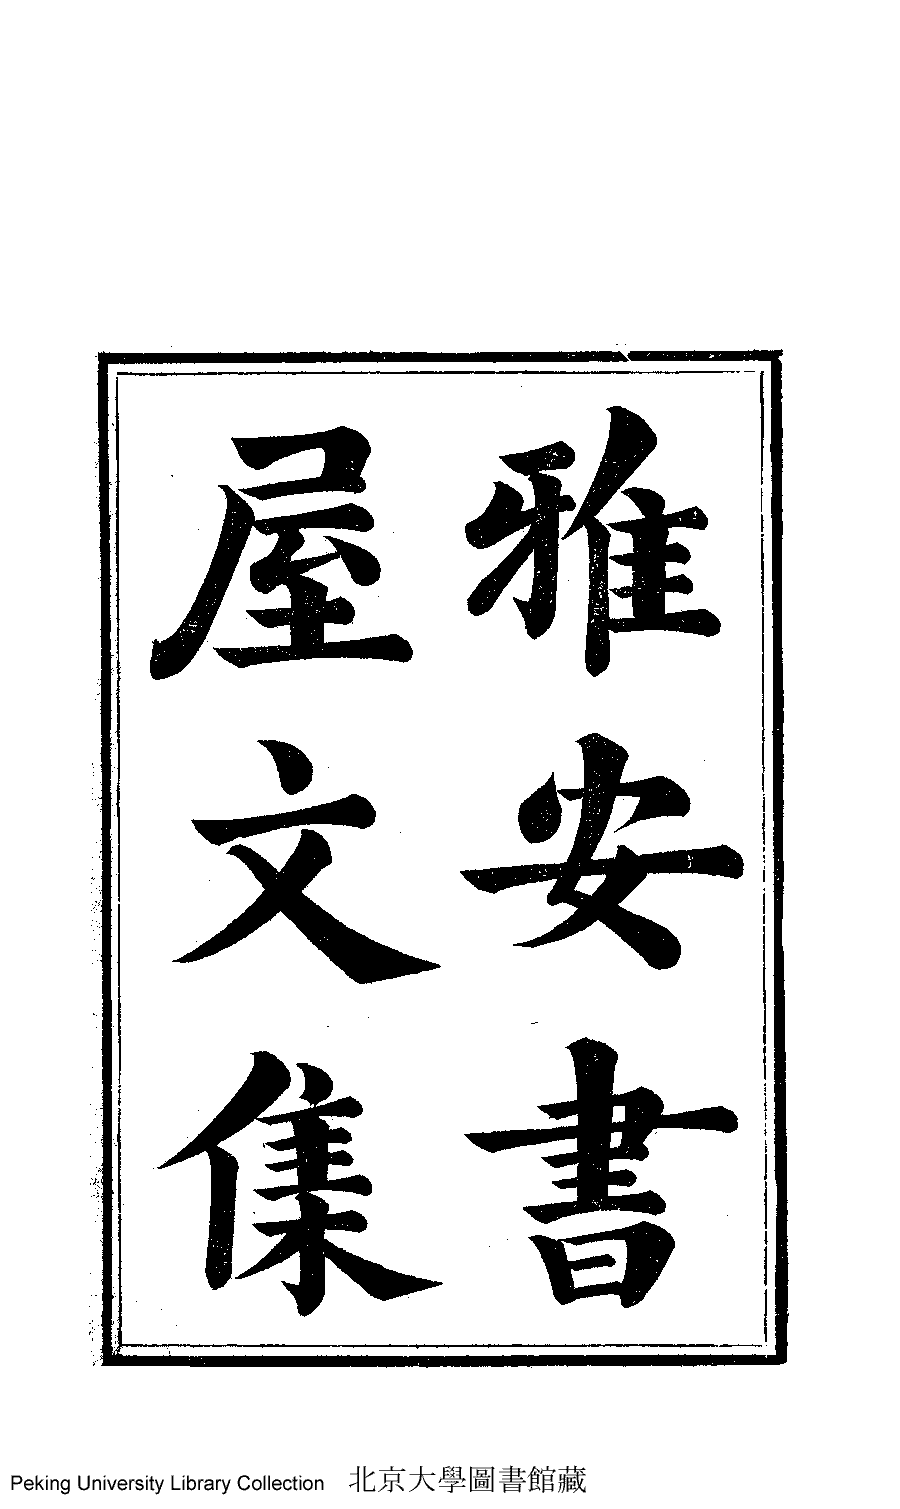 雅安書
屋文集
Peking University Library Collection 北京大學圖書館藏